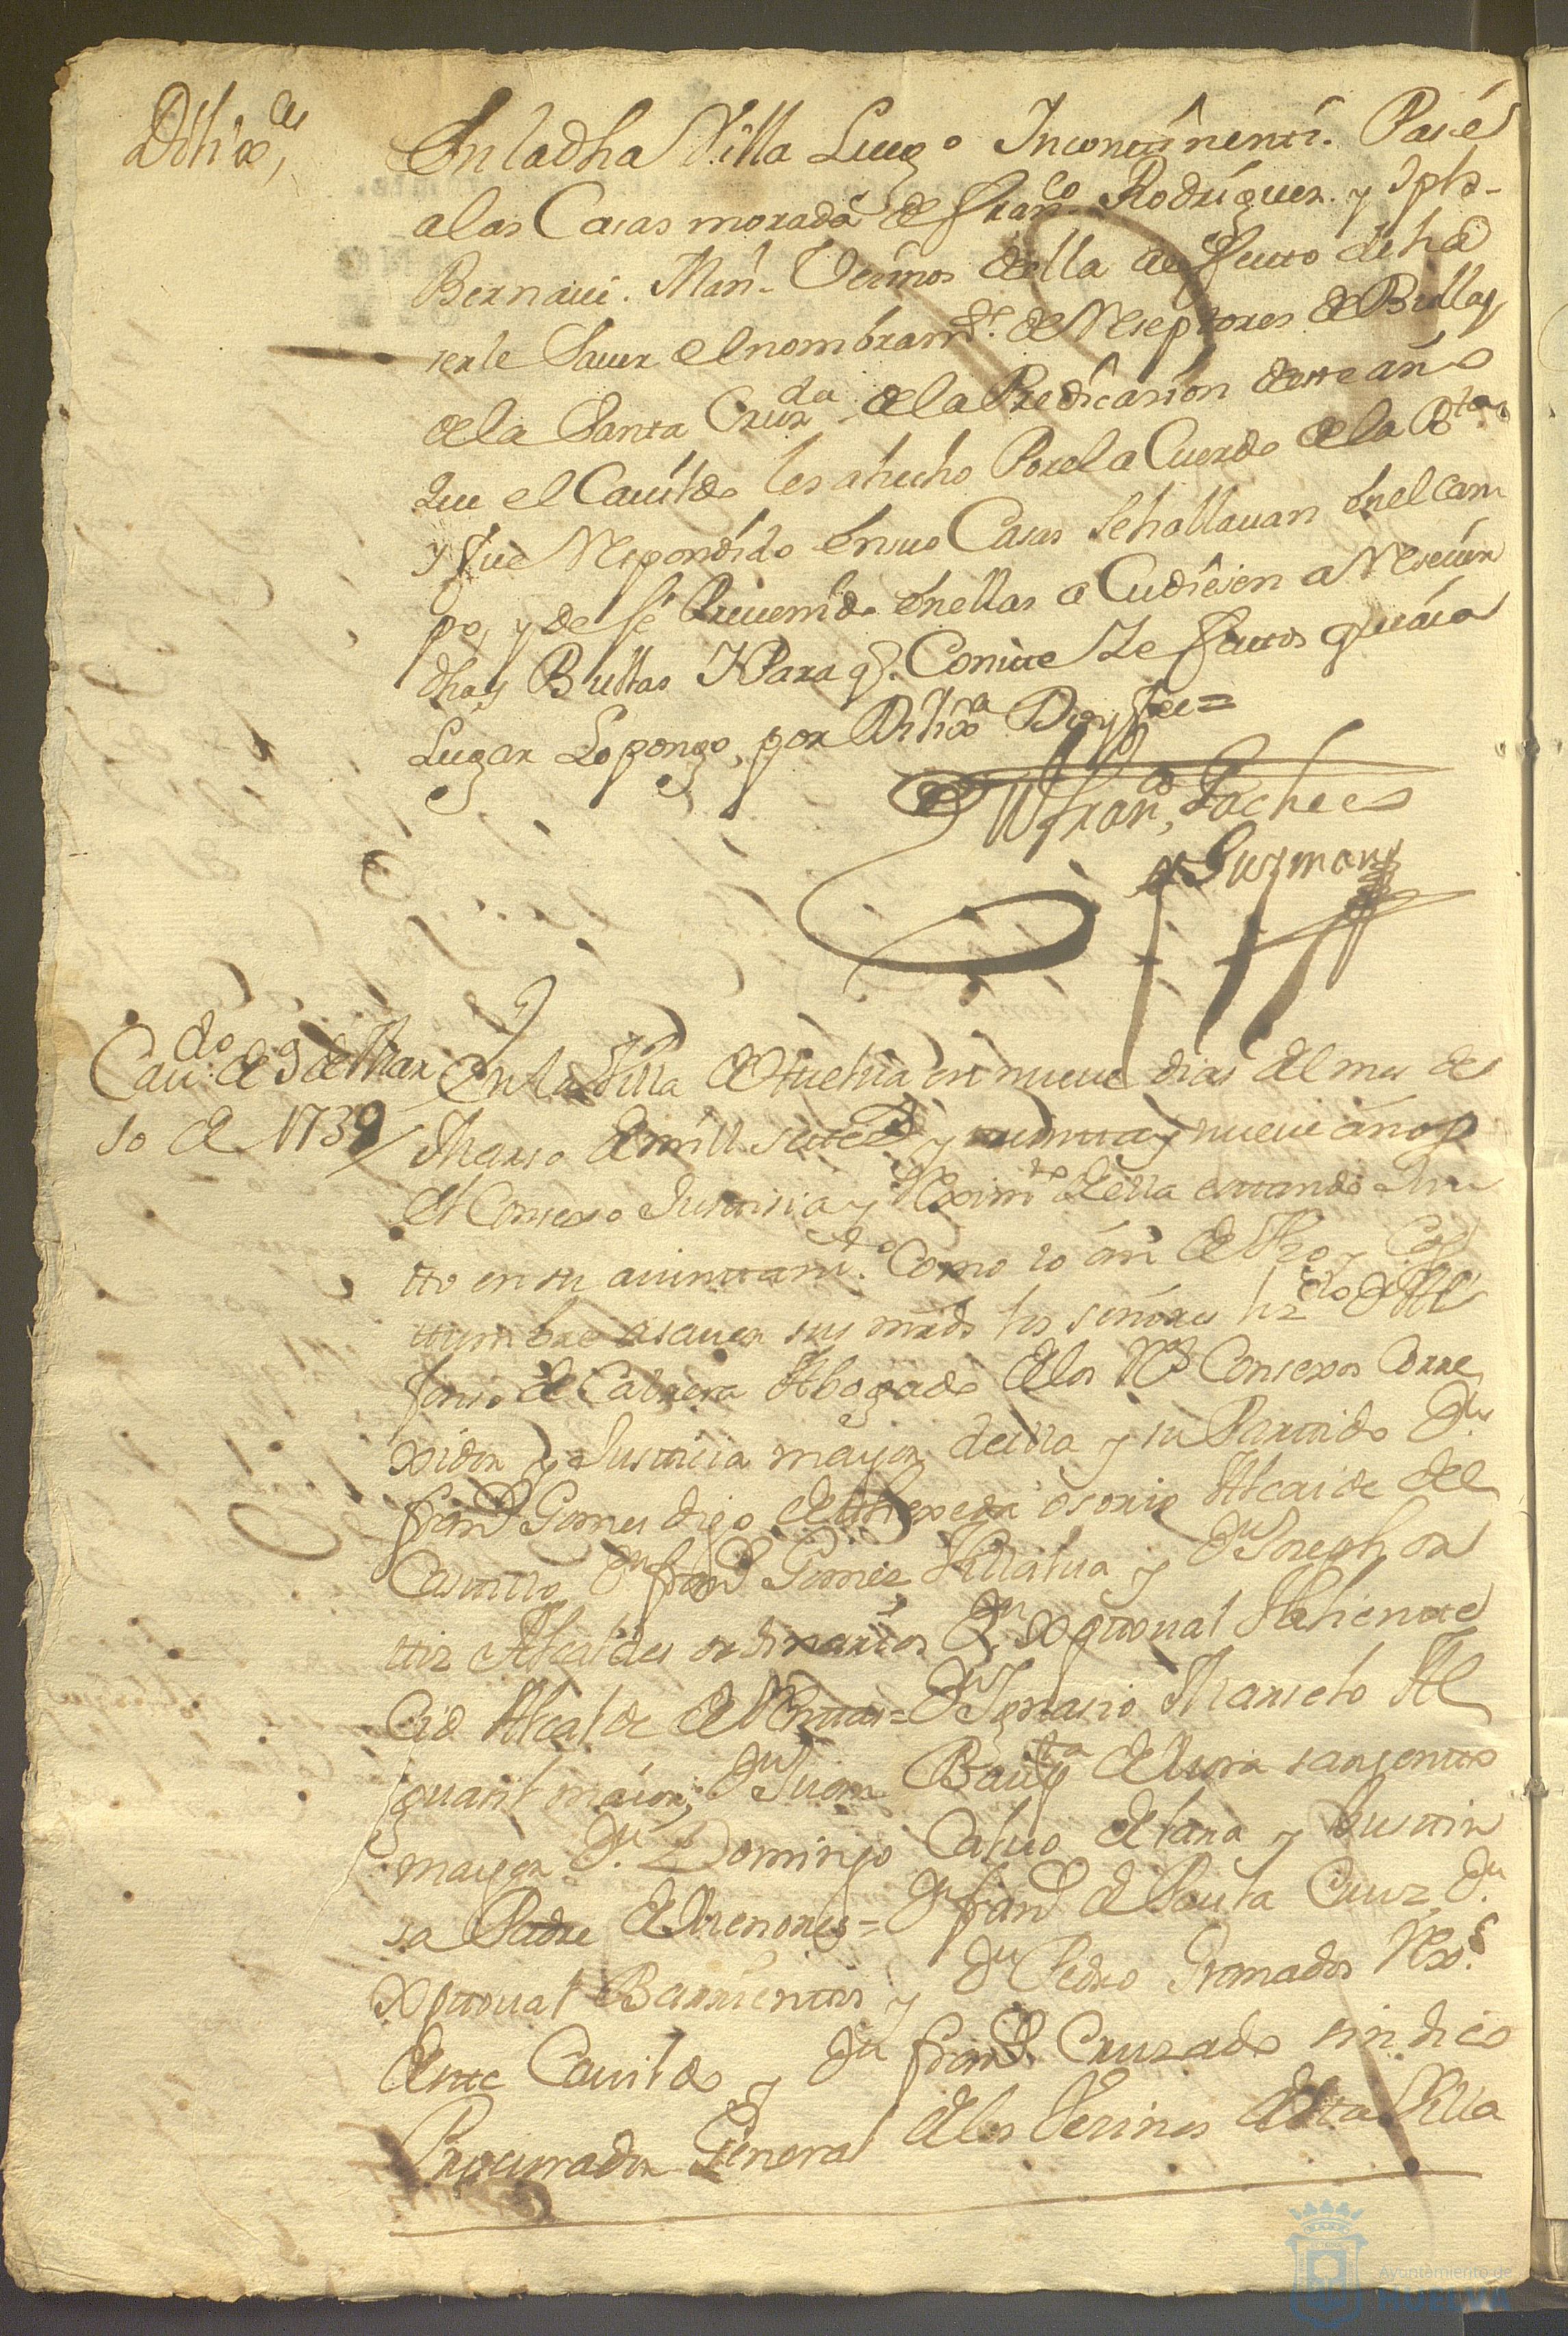 Dilixas
En la dha Villa Luego Incontinenti. Pasé
a las Casas morada de Franco Rodriguez. y
Bernaui. Vecinos della de efecto de ha
serle Sauer el nombramto. de Reseptores de Bullas
de la Santa Cruzda de la Predicasion deste año
que el Cauildo les a hecho Por el a Cuerdo de la
y fue Respondido en sus Casas Se hallauan en el cam
po, y de Preuenido en ellas a Cudiesen a Reseuir
dhas Bullas Y Para q. Conste Y efectos q aia
Lugar Lo pongo, por Dilixa Doy fee=
Franco, Pacheco
y Guzman
Cauido. de 9 de Mar
so de 1739
En la Villa de Huelua en nueue dias del mes de
Marso de mill setecs y treinta y nueue años
el Consexo Justisia y Reximto della estando Jun
tto en su aiuntamto. Como lo an de Uso y Cos
tumbre asauer sus mrds los señores lizdo dn Al
fonso de Cabrera Abogado de los Rs Consexos Corre
xidor y Justicia mayor desta y su Partido Dn
franco Gomes digo de osorio Alcaide del
Castillo Dn franco Gomez Villalua y Dn Joseph or
tiz Alcaldes ordinarios Dn Xptoual
Cid Alcalde de = Dn Ignasio Marselo Al
guasil maior; Dn Juan Bauta de lara sarjento
mayor Dn. Domingo Caluo de lara y
sa Padre de Menores= Dn franco de Paula Cruz Dn.
Xptoual Barrientos y Dn Pedro Granados Rexs.
deste Cauildo y Dn franco. Cruzado sindico
Procurador General de los Vecinos desta Villa
Ayuntamiento de
HUELVA